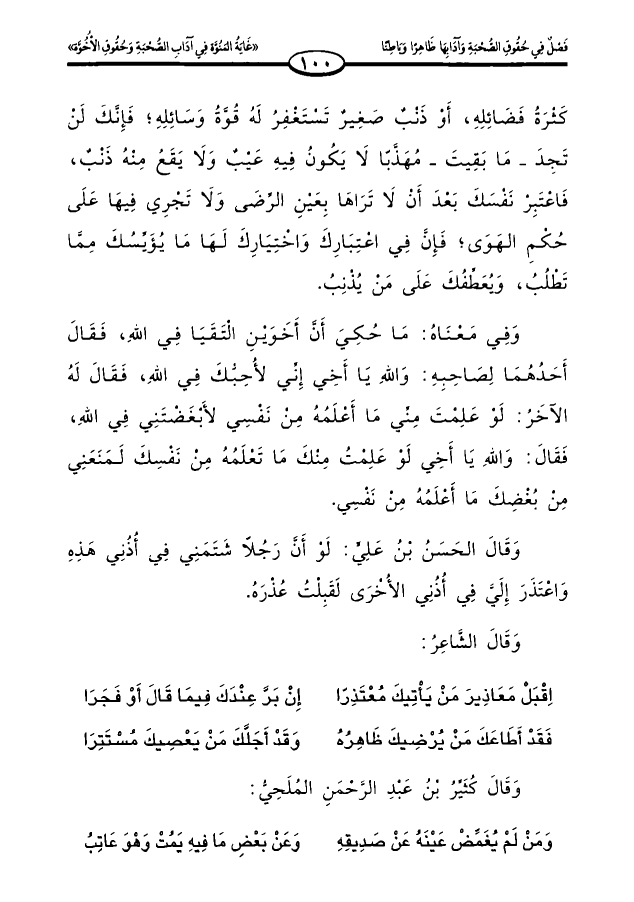 فَصْلٌ فِي حُقُوقِ الصُّحْبَةِ وَآدَابِهَا ظَاهِرًا وَبَاطِنًا
١٠٠
«غَايَةُ المَنُوَّهْ فِي آدَابِ الصُّحْبَةِ وَحُقُوقِ الأُخُوَّة»
كَثْرَةُ فَضَائِلِهِ، أَوْ ذَنْبٌ صَغِيرٌ تَسْتَغْفِرُ لَهُ قُوَّةُ وَسَائِلِهِ؛ فَإِنَّكَ لَنْ
تَجِدَ - مَا بَقِيتَ - مُهَذَّبًا لَا يَكُونُ فِيهِ عَيْبٌ وَلَا يَقَعُ مِنْهُ ذَنْبٌ،
فَاعْتَبِرْ نَفْسَكَ بَعْدَ أَنْ لَا تَرَاهَا بِعَيْنِ الرِّضَى وَلَا تَجْرِي فِيهَا عَلَى
حُكْمِ الهَوَى؛ فَإِنَّ فِي اعْتِبَارِكَ وَاخْتِيَارِكَ لَهَا مَا يُؤَيِّسُكَ مِمَّا
تَطْلُبُ، وَيُعَطِّفُكَ عَلَى مَنْ يُذْنِبُ.
وَفِي مَعْنَاهُ: مَا حُكِيَ أَنَّ أَخَوَيْنِ الْتَقَيَا فِي اللهِ، فَقَالَ
أَحَدُهُمَا لِصَاحِبِهِ: وَاللهِ يَا أَخِي إِنِّي لأُحِبُّكَ فِي اللهِ، فَقَالَ لَهُ
الآخَرُ: لَوْ عَلِمْتَ مِنِّي مَا أَعْلَمُهُ مِنْ نَفْسِي لأَبْغَضْتَنِي فِي اللهِ،
فَقَالَ: وَاللهِ يَا أَخِي لَوْ عَلِمْتُ مِنْكَ مَا تَعْلَمُهُ مِنْ نَفْسِكَ لَمَنَعَنِي
مِنْ بُغْضِكَ مَا أَعْلَمُهُ مِنْ نَفْسِي.
وَقَالَ الحَسَنُ بْنُ عَلِيٍّ: لَوْ أَنَّ رَجُلًا شَتَمَنِي فِي أُذُنِي هَذِهِ
وَاعْتَذَرَ إِلَيَّ فِي أُذُنِي الأُخْرَى لَقَبِلْتُ عُذْرَهُ.
وَقَالَ الشَّاعِرُ:
اِقْبَلْ مَعَاذِيرَ مَنْ يَأْتِيكَ مُعْتَذِرًا إِنْ بَرَّ عِنْدَكَ فِيمَا قَالَ أَوْ فَجَرَا
فَقَدْ أَطَاعَكَ مَنْ يُرْضِيكَ ظَاهِرُهُ وَقَدْ أَجَلَّكَ مَنْ يَعْصِيكَ مُسْتَتِرَا
وَقَالَ كُثَيِّرُ بْنُ عَبْدِ الرَّحْمَنِ المُلَحِيُّ:
وَمَنْ لَمْ يُغَمِّضْ عَيْنَهُ عَنْ صَدِيقِهِ وَعَنْ بَعْضِ مَا فِيهِ يَمُتْ وَهْوَ عَاتِبُ